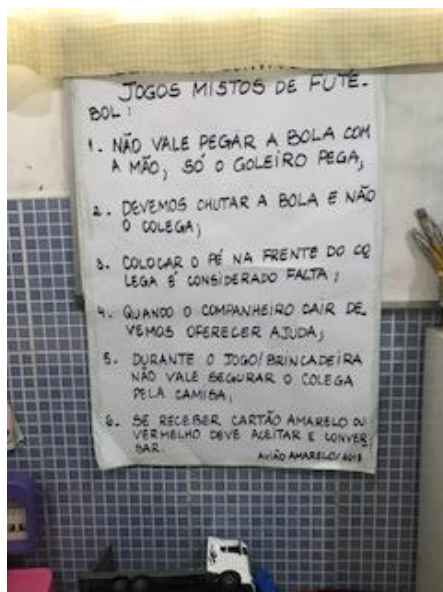 JOGOS MISTOS DE FUTE-
BOL:
1. NÃO VALE PEGAR A BOLA COM
A MÃO, SÓ O GOLEIRO PEGA;
2. DEVEMOS CHUTAR A BOLA E NÃO
O COLEGA;
3. COLOCAR O PÉ NA FRENTE DO CO
LEGA É CONSIDERADO FALTA;
4. QUANDO O COMPANHEIRO CAIR DE
VEMOS OFERECER AJUDA;
5. DURANTE O JOGO/BRINCADEIRA
NÃO VALE SEGURAR O COLEGA
PELA CAMISA;
6. SE RECEBER CARTÃO AMARELO OU
VERMELHO DEVE ACEITAR E CONVER
SAR.
AVIÃO AMARELO/2018